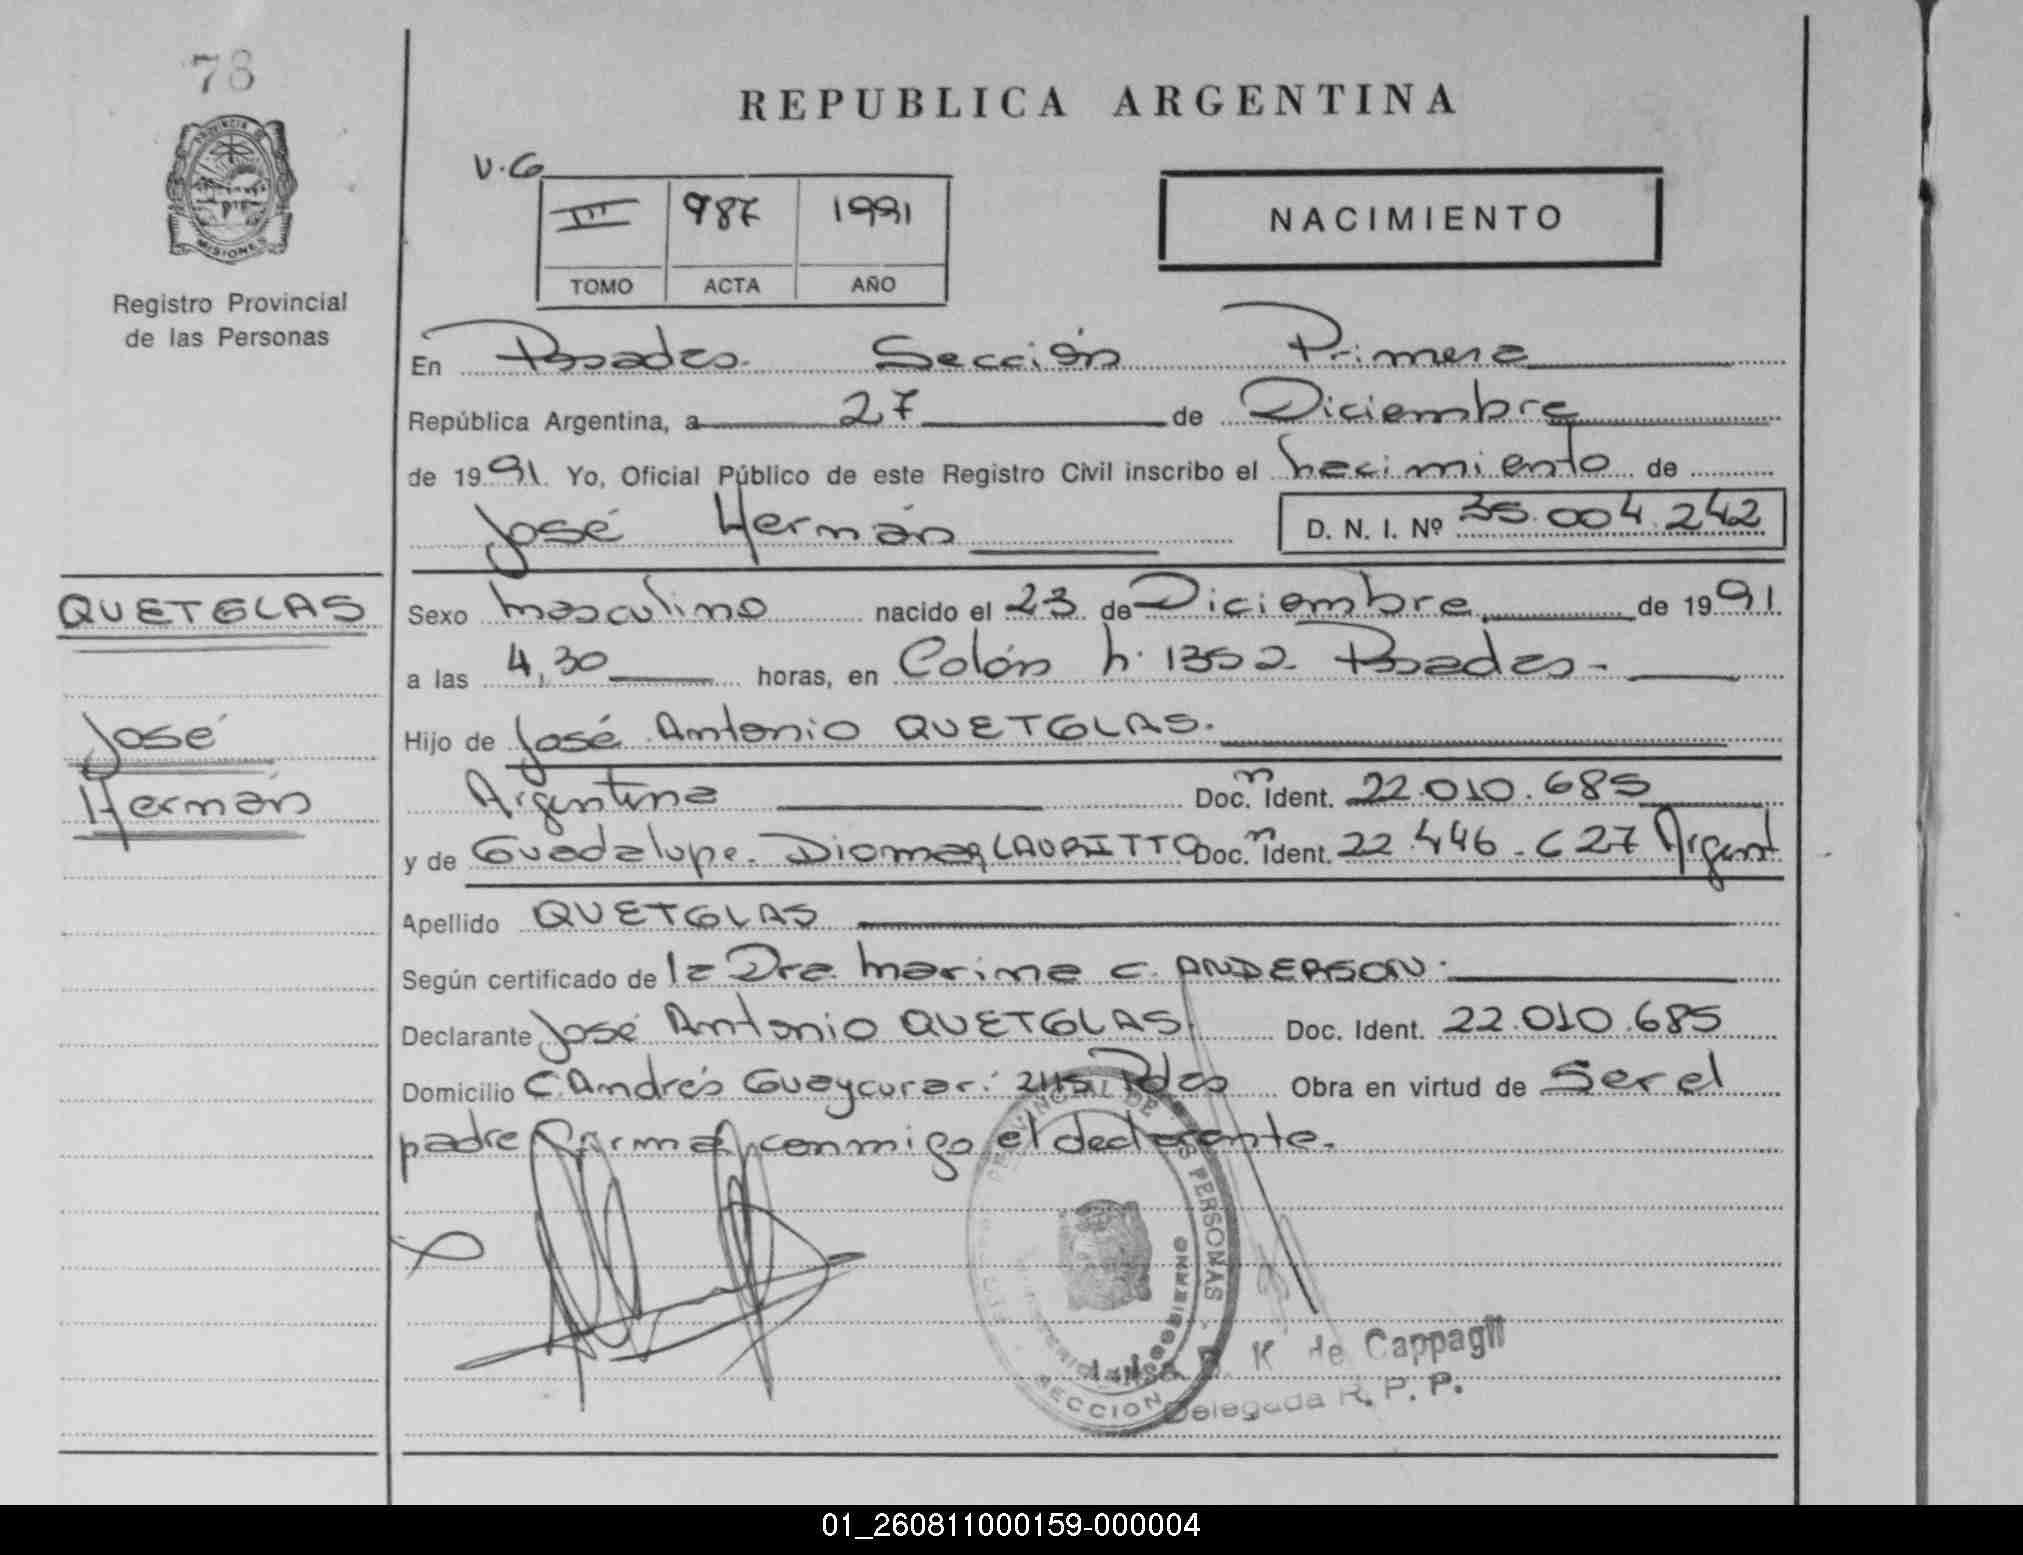 78
PROVINCIA DE
MISIONES
Registro Provincial
de las Personas
REPUBLICA ARGENTINA
V.G
III 987 1991
TOMO ACTA AÑO
NACIMIENTO
En Posadas Sección Primera
República Argentina, a 27 de Diciembre
de 1991 Yo, Oficial Público de este Registro Civil inscribo el nacimiento de
José Hernán D. N. I. Nº 35.004.242
QUETGLAS
José
Hernán
Sexo masculino nacido el 23 de Diciembre de 1991.
a las 4,30 horas, en Colón n. 1352 Posadas-
Hijo de José Antonio QUETGLAS.
Argentina Doc. n Ident. 22.010.685
y de Guadalupe Diomar LAURITTO Doc. n Ident. 22.446.627 Argent
Apellido QUETGLAS
Según certificado de la Dra. Marina C. ANDERSON.
Declarante José Antonio QUETGLAS. Doc. Ident. 22.010.685
Domicilio C. Andrés Guaycurar: 2115 Pdas Obra en virtud de Ser el
padre firma conmigo el declarante.
PROVINCIAL DE LAS PERSONAS
MINISTERIO DE GOBIERNO
SECCION
K de Cappagli
Delegada R. P. P.
01_260811000159-000004